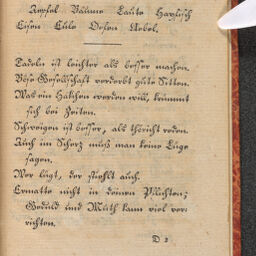 Aepfel Bäume Laute Haylisch
Eisen Eule Ochsen Nebel.
Tadeln ist leichter als besser machen.
Böse Gesellschaft verderbt gute Sitten.
Was ein Häkchen werden will, krümmt
sich bei Zeiten.
Schweigen ist besser, als thöricht reden.
Auch im Scherz muß man keine Lüge
sagen.
Wer lügt, der stiehlt auch.
Ermatte nicht in deinen Pflichten;
Geduld und Muth kann viel ver-
richten.
D 2